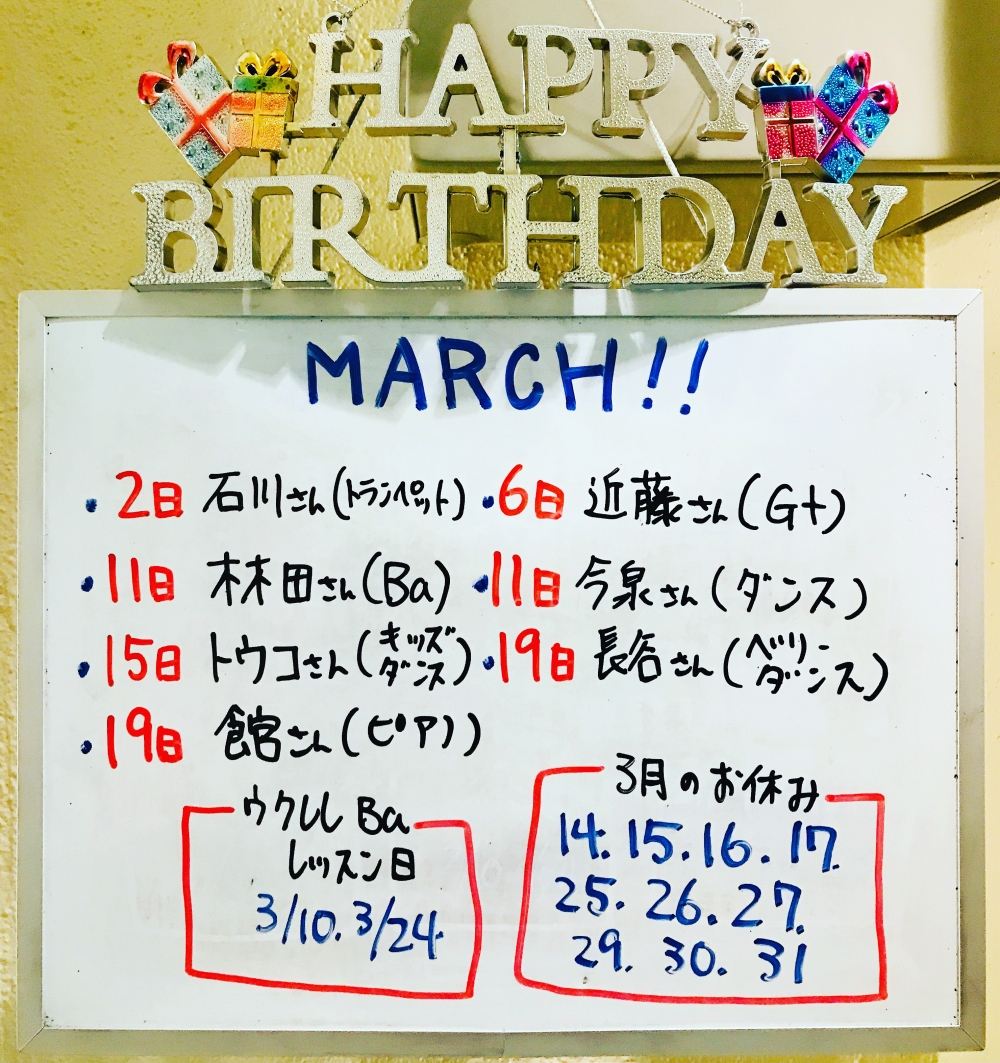 HAPPY
BIRTHDAY
MARCH!!
・2日 石川さん(トランペット) ・6日 近藤さん(Gt)
・11日 林田さん(Ba) ・11日 今泉さん(ダンス)
・15日 トウコさん(キッズダンス) ・19日 長谷さん(ベリーダンス)
・19日 館さん(ピアノ)
ウクレレ Ba
レッスン日
3/10. 3/24
3月のお休み
14. 15. 16. 17.
25. 26. 27.
29. 30. 31